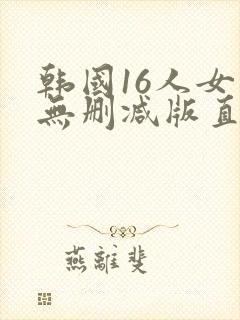 韩國16人女
無删减版直
燕離斐